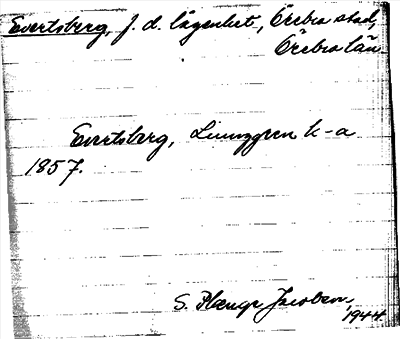 Evertsberg, f. d. lägenhet, Örebro stad,
Örebro län
Evertsberg, Ljunggren k-a
1857.
S. Plænge Jacobson
1944.